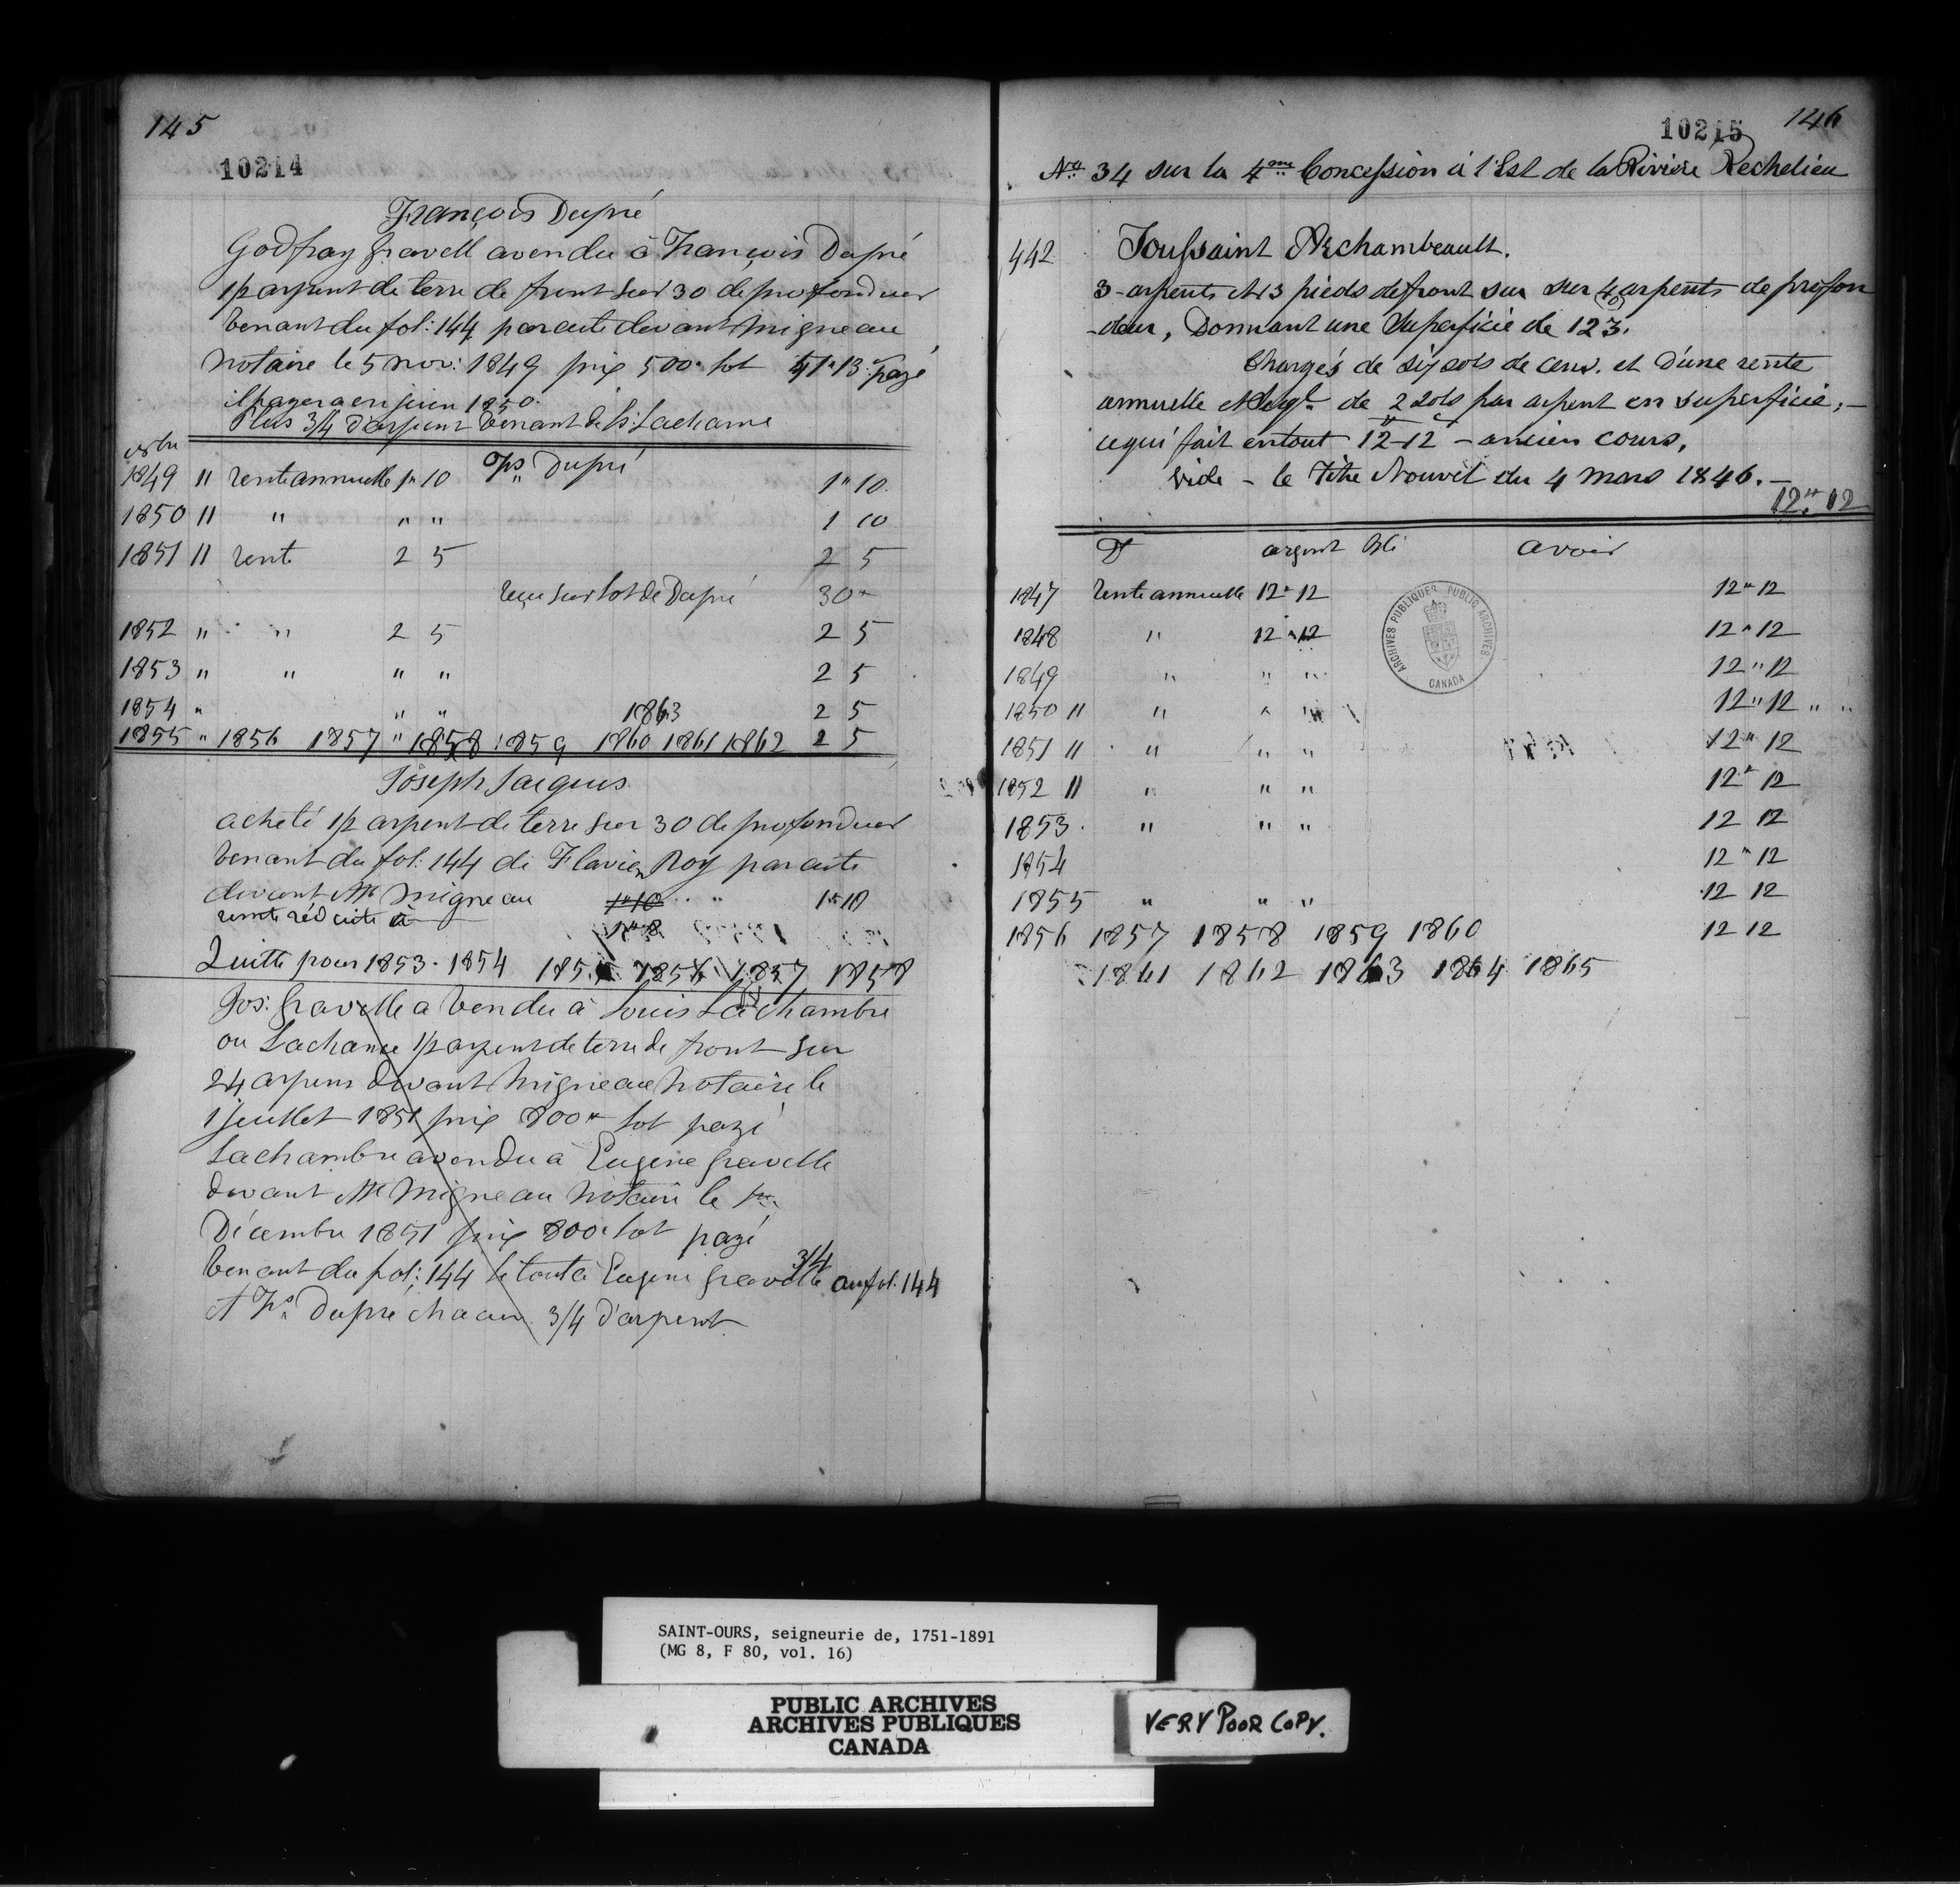 145
10214
François Dupré
Godfray Gravell a vendu à François Dupré
1/2 arpent de terre de front sur 30 de profondeur
venant du fol: 144 par acte devant Migneau
notaire le 5 nov: 1849 prix 500" lot 41"13 payé
il payera en juin 1850.
Plus 3/4 d'arpent venant de Ls: Lachance
1849 " rente annuelle 1" 10 Frs Dupré 1" 10
1850 " " " " 1 10
1851 " rente 2 5 2 5
reçu sur lot de Dupré 30"
1852 " " 2 5 2 5
1853 " " " " 2 5
1854 " " " 1863 2 5
1855 " 1856 1857 " 1858 1859 1860 1861 1862 2 5
Joseph Jacques
acheté 1/2 arpent de terre sur 30 de profondeur
venant du fol: 144 de Flavien Roy par acte
devant Me Migneau 1"10 " 1"10
rente réduite à 1"8
Quitte pour 1853 - 1854 1855 1856 1857 1858
Jos: Gravelle a vendu à Louis Lachambre
ou Lachance 1/2 arpent de terre de front sur
24 arpens devant Migneau notaire le
1 juillet 1851 prix 800" lot payé
Lachambre a vendu à Eugene Gravelle
devant Me Migneau notaire le 1er
Décembre 1851 prix 800" lot payé
venant du fol: 144 le tout à Eugene Gravelle 3/4 au fol: 144
et Frs Dupré chacun 3/4 d'arpent
146
10215
No 34 sur la 4me Concession à l'Est de la Rivière Rechelieu
442 Toussaint Archambeault.
3 - arpents et 3 pieds de front sur sur 40 arpents de profon
-deur, Donnant une Superficie de 123.
Chargés de six sols de cens. et d'une rente
annuelle & Seigle de 2 sols par arpent en superficie, -
ce qui fait en tout 12-12 - ancien cours,
vide - le Titre Nouvel du 4 Mars 1846. -
12" 12
Dt argent Blé avoir
1847 rente annuelle 12" 12 12" 12
1848 " 12" 12 12" 12
1849 " " " 12" 12
1850 " " " " 12" 12 " "
1851 " " " " 12" 12
1852 " " " " 12" 12
1853 " " " 12 12
1854 12" 12
1855 " " " 12 12
1856 1857 1858 1859 1860 12 12
1861 1862 1863 1864 1865
ARCHIVES PUBLIQUES PUBLIC ARCHIVES
CANADA
SAINT-OURS, seigneurie de, 1751-1891
(MG 8, F 80, vol. 16)
PUBLIC ARCHIVES
ARCHIVES PUBLIQUES
CANADA
VERY POOR COPY.